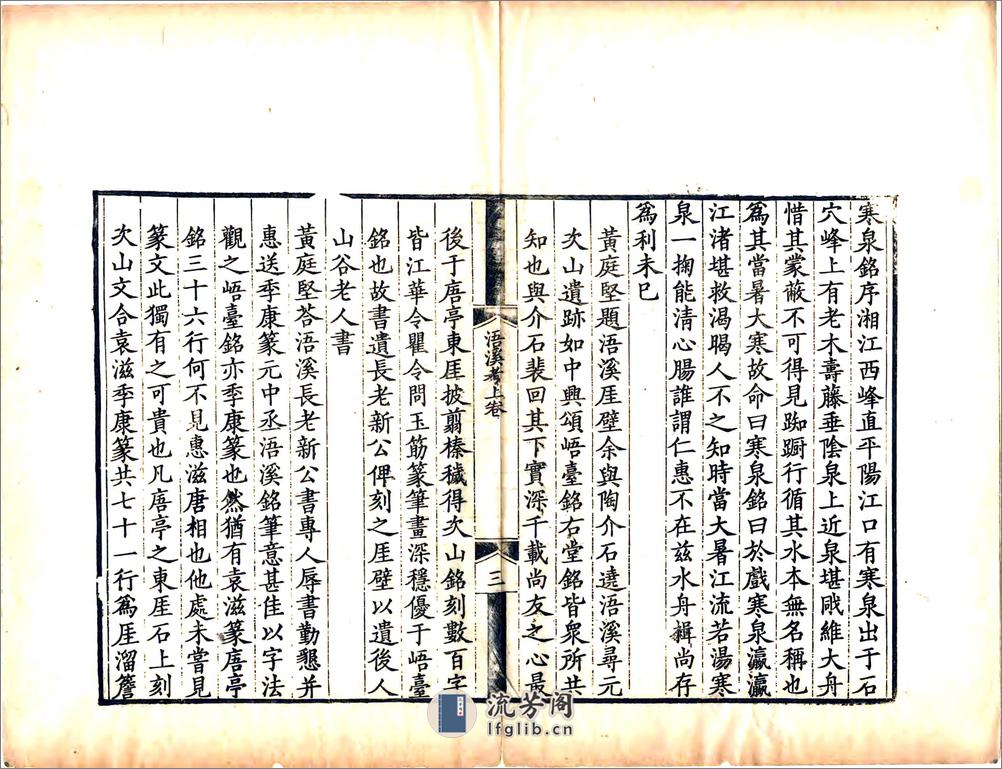 寒泉銘序湘江西峰直平陽江口有寒泉出于石
穴峰上有老木壽藤垂陰泉上近泉堪戙維大舟
惜其蒙蔽不可得見踟蹰行循其水本無名稱也
爲其當暑大寒故命曰寒泉銘曰於戲寒泉瀛瀛
江渚堪救渴暍人不之知時當大暑江流若湯寒
泉一掬能清心腸誰謂仁惠不在兹水舟楫尚存
爲利未已
黃庭堅題浯溪厓壁余與陶介石遶浯溪尋元
次山遺跡如中興頌峿臺銘右堂銘皆衆所共
知也與介石裴回其下實深千載尚友之心最
浯溪考上卷
三
後于㾗亭東厓披翦榛穢得次山銘刻數百字
皆江華令瞿令問玉筯篆筆畫深穩優于峿臺
銘也故書遺長老新公俾刻之厓壁以遺後人
山谷老人書
黃庭堅荅浯溪長老新公書專人辱書勤懇并
惠送季康篆元中丞浯溪銘筆意甚佳以字法
觀之峿臺銘亦季康篆也然猶有袁滋篆㾗亭
銘三十六行何不見惠滋唐相也他處未嘗見
篆文此獨有之可貴也凡㾗亭之東厓石上刻
次山文合袁滋季康篆共七十一行爲厓溜簷
流芳阁
lfglib.cn